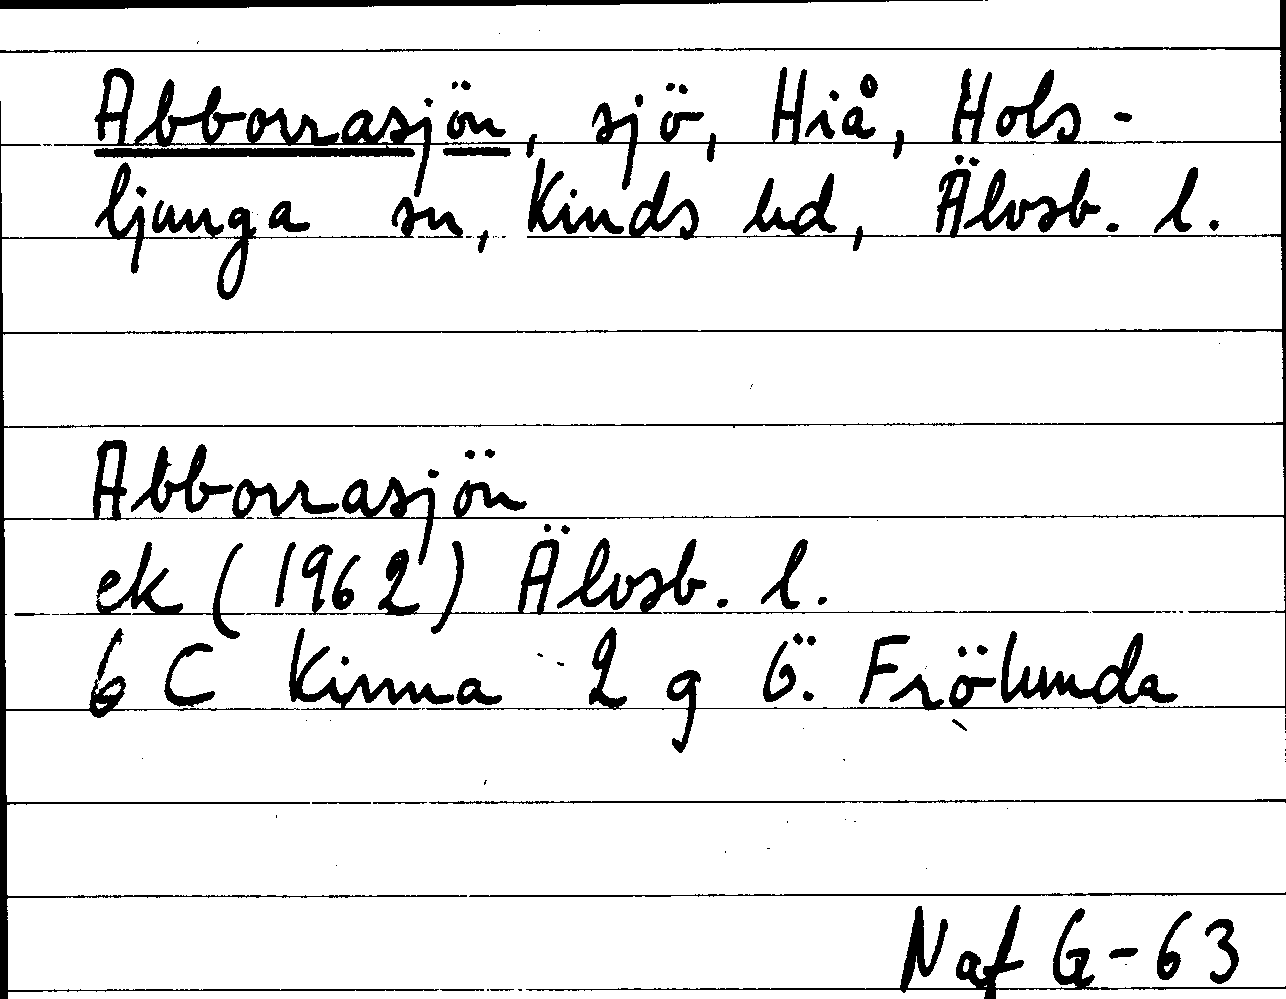 Abborrasjön, sjö, Hiå, Hols-
ljunga sn, Kinds hd, Älvsb. l.
Abborrasjön
ek (1962) Älvsb. l.
6 C Kinna 2 g Ö. Frölunda
Naf G-63